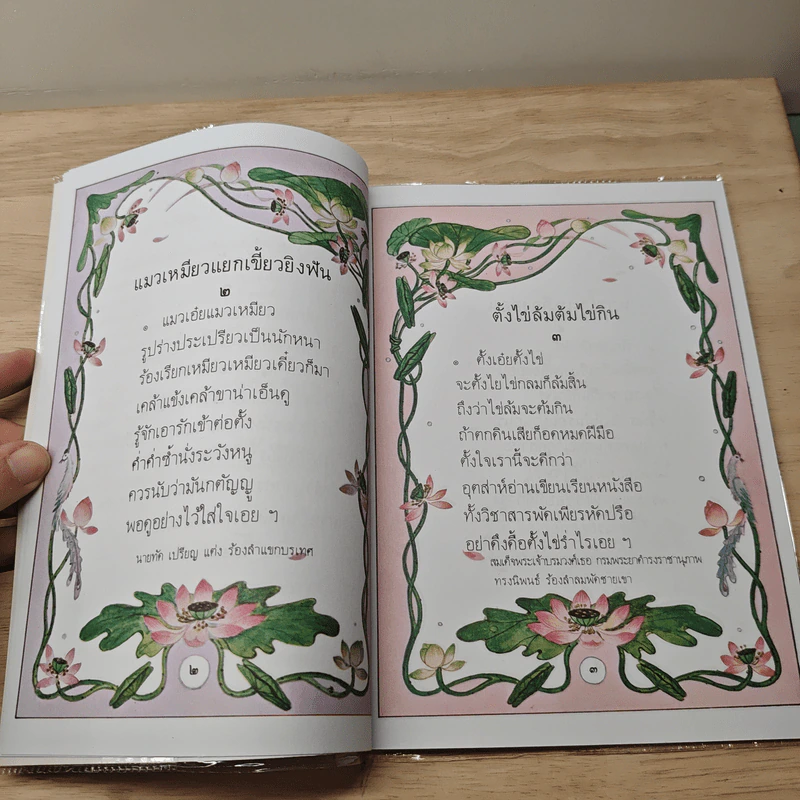 แมวเหมียวแยกเขี้ยวยิงฟัน
๒
๏ แมวเอ๋ยแมวเหมียว
รูปร่างประเปรียวเป็นนักหนา
ร้องเรียกเหมียวเหมียวเดี๋ยวก็มา
เคล้าแข้งเคล้าขาน่าเอ็นดู
รู้จักเอารักเข้าต่อตั้ง
ค่ำค่ำซ้ำนั่งระวังหนู
ควรนับว่ามันกตัญญู
พอดูอย่างไว้ใส่ใจเอย ฯ
นายทัด เปรียญ แต่ง ร้องลำแขกบรเทศ
๒
ตั้งไข่ล้มต้มไข่กิน
๓
๏ ตั้งเอ๋ยตั้งไข่
จะตั้งไยไข่กลมก็ล้มสิ้น
ถึงว่าไข่ล้มจะต้มกิน
ถ้าตกดินเสียก็อดหมดฝีมือ
ตั้งใจเรานี้จะดีกว่า
อุตส่าห์อ่านเขียนเรียนหนังสือ
ทั้งวิชาสารพัดเพียรหัดปรือ
อย่าดึงดื้อตั้งไข่ร่ำไรเอย ฯ
สมเด็จพระเจ้าบรมวงศ์เธอ กรมพระยาดำรงราชานุภาพ
ทรงนิพนธ์ ร้องลำลมพัดชายเขา
๓